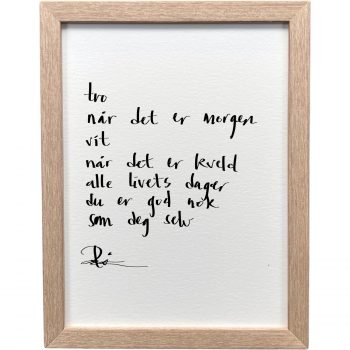 tro
når det er morgen
vit
når det er kveld
alle livets dager
du er god nok
som deg selv